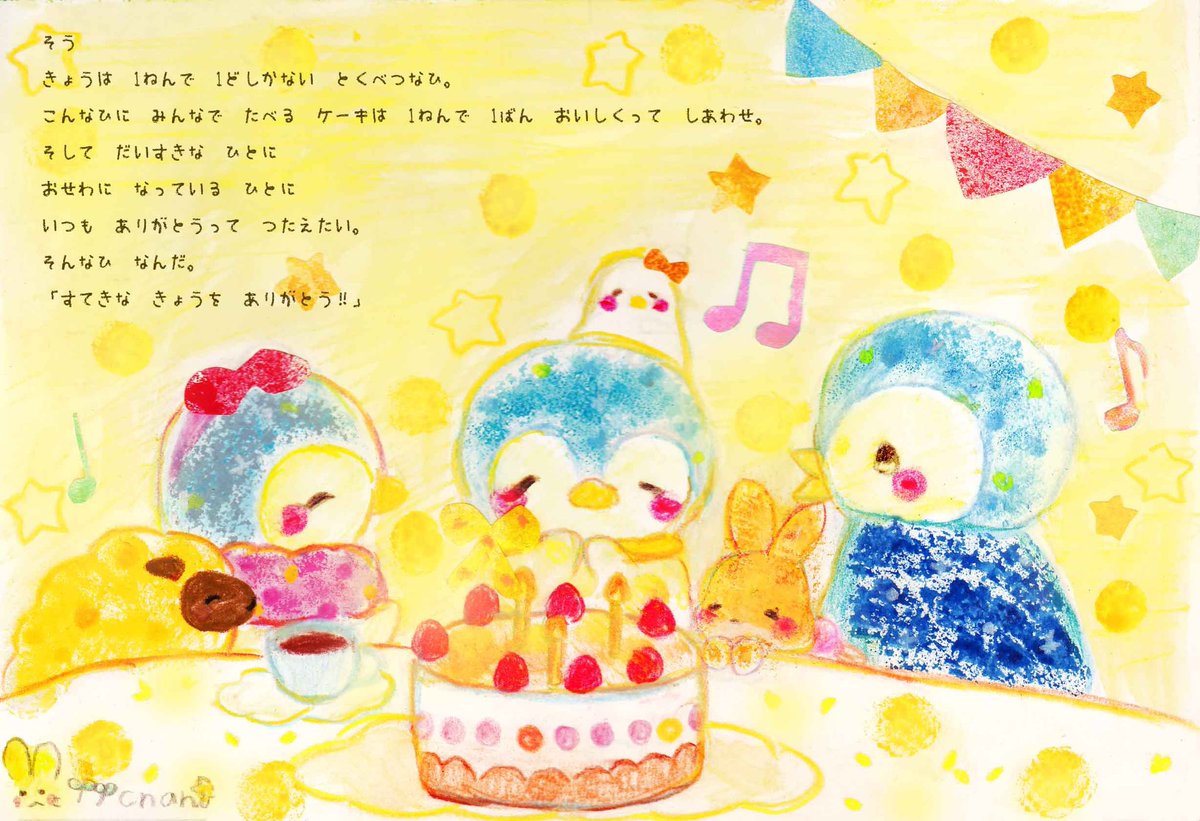 そう
きょうは 1ねんで 1どしかない とくべつなひ。
こんなひに みんなで たべる ケーキは 1ねんで 1ばん おいしくって しあわせ。
そして だいすきな ひとに
おせわに なっている ひとに
いつも ありがとうって つたえたい。
そんなひ なんだ。
「すてきな きょうを ありがとう!!」